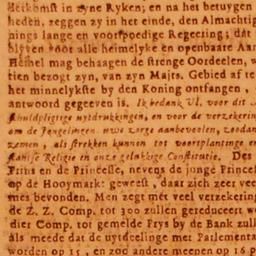 Herkomst in zyne Ryken; en na het betuygen
heden, zeggen zy in het einde, den Almachtig
nings lange en voorspoedige Regeering; dat
blyven voor alle heimelyke en openbaare Aan
Hemel mag behaagen de strenge Oordeelen, w
tien bezogt zyn, van zyn Majts. Gebied af te
het minnelykste by den Koning ontfangen,
antwoord gegeeven is. Ik bedank Ul. voor dit
schuldpligtige uytdrukkingen, en voor de verzekerin
om de Jongelingen, uwe zorge aanbevoolen, zoodan
zamen, als strekken kunnen tot voortplantinge
tantse Religie en onze gelukkige Constitutie. Des
Prins en de Princesse, nevens de jonge Prince
op de Hooymarkt geweest, daar zich zeer vee
mes bevonden. Men zegt met veel verzekering
de Z. Z. Comp. tot 300 zullen gereduceert w
dier Comp. tot gemelde Prys by de Bank zull
als meede dat de uytdeelinge met Parlements
worden op 15, en 200 andere meenen op 16 p